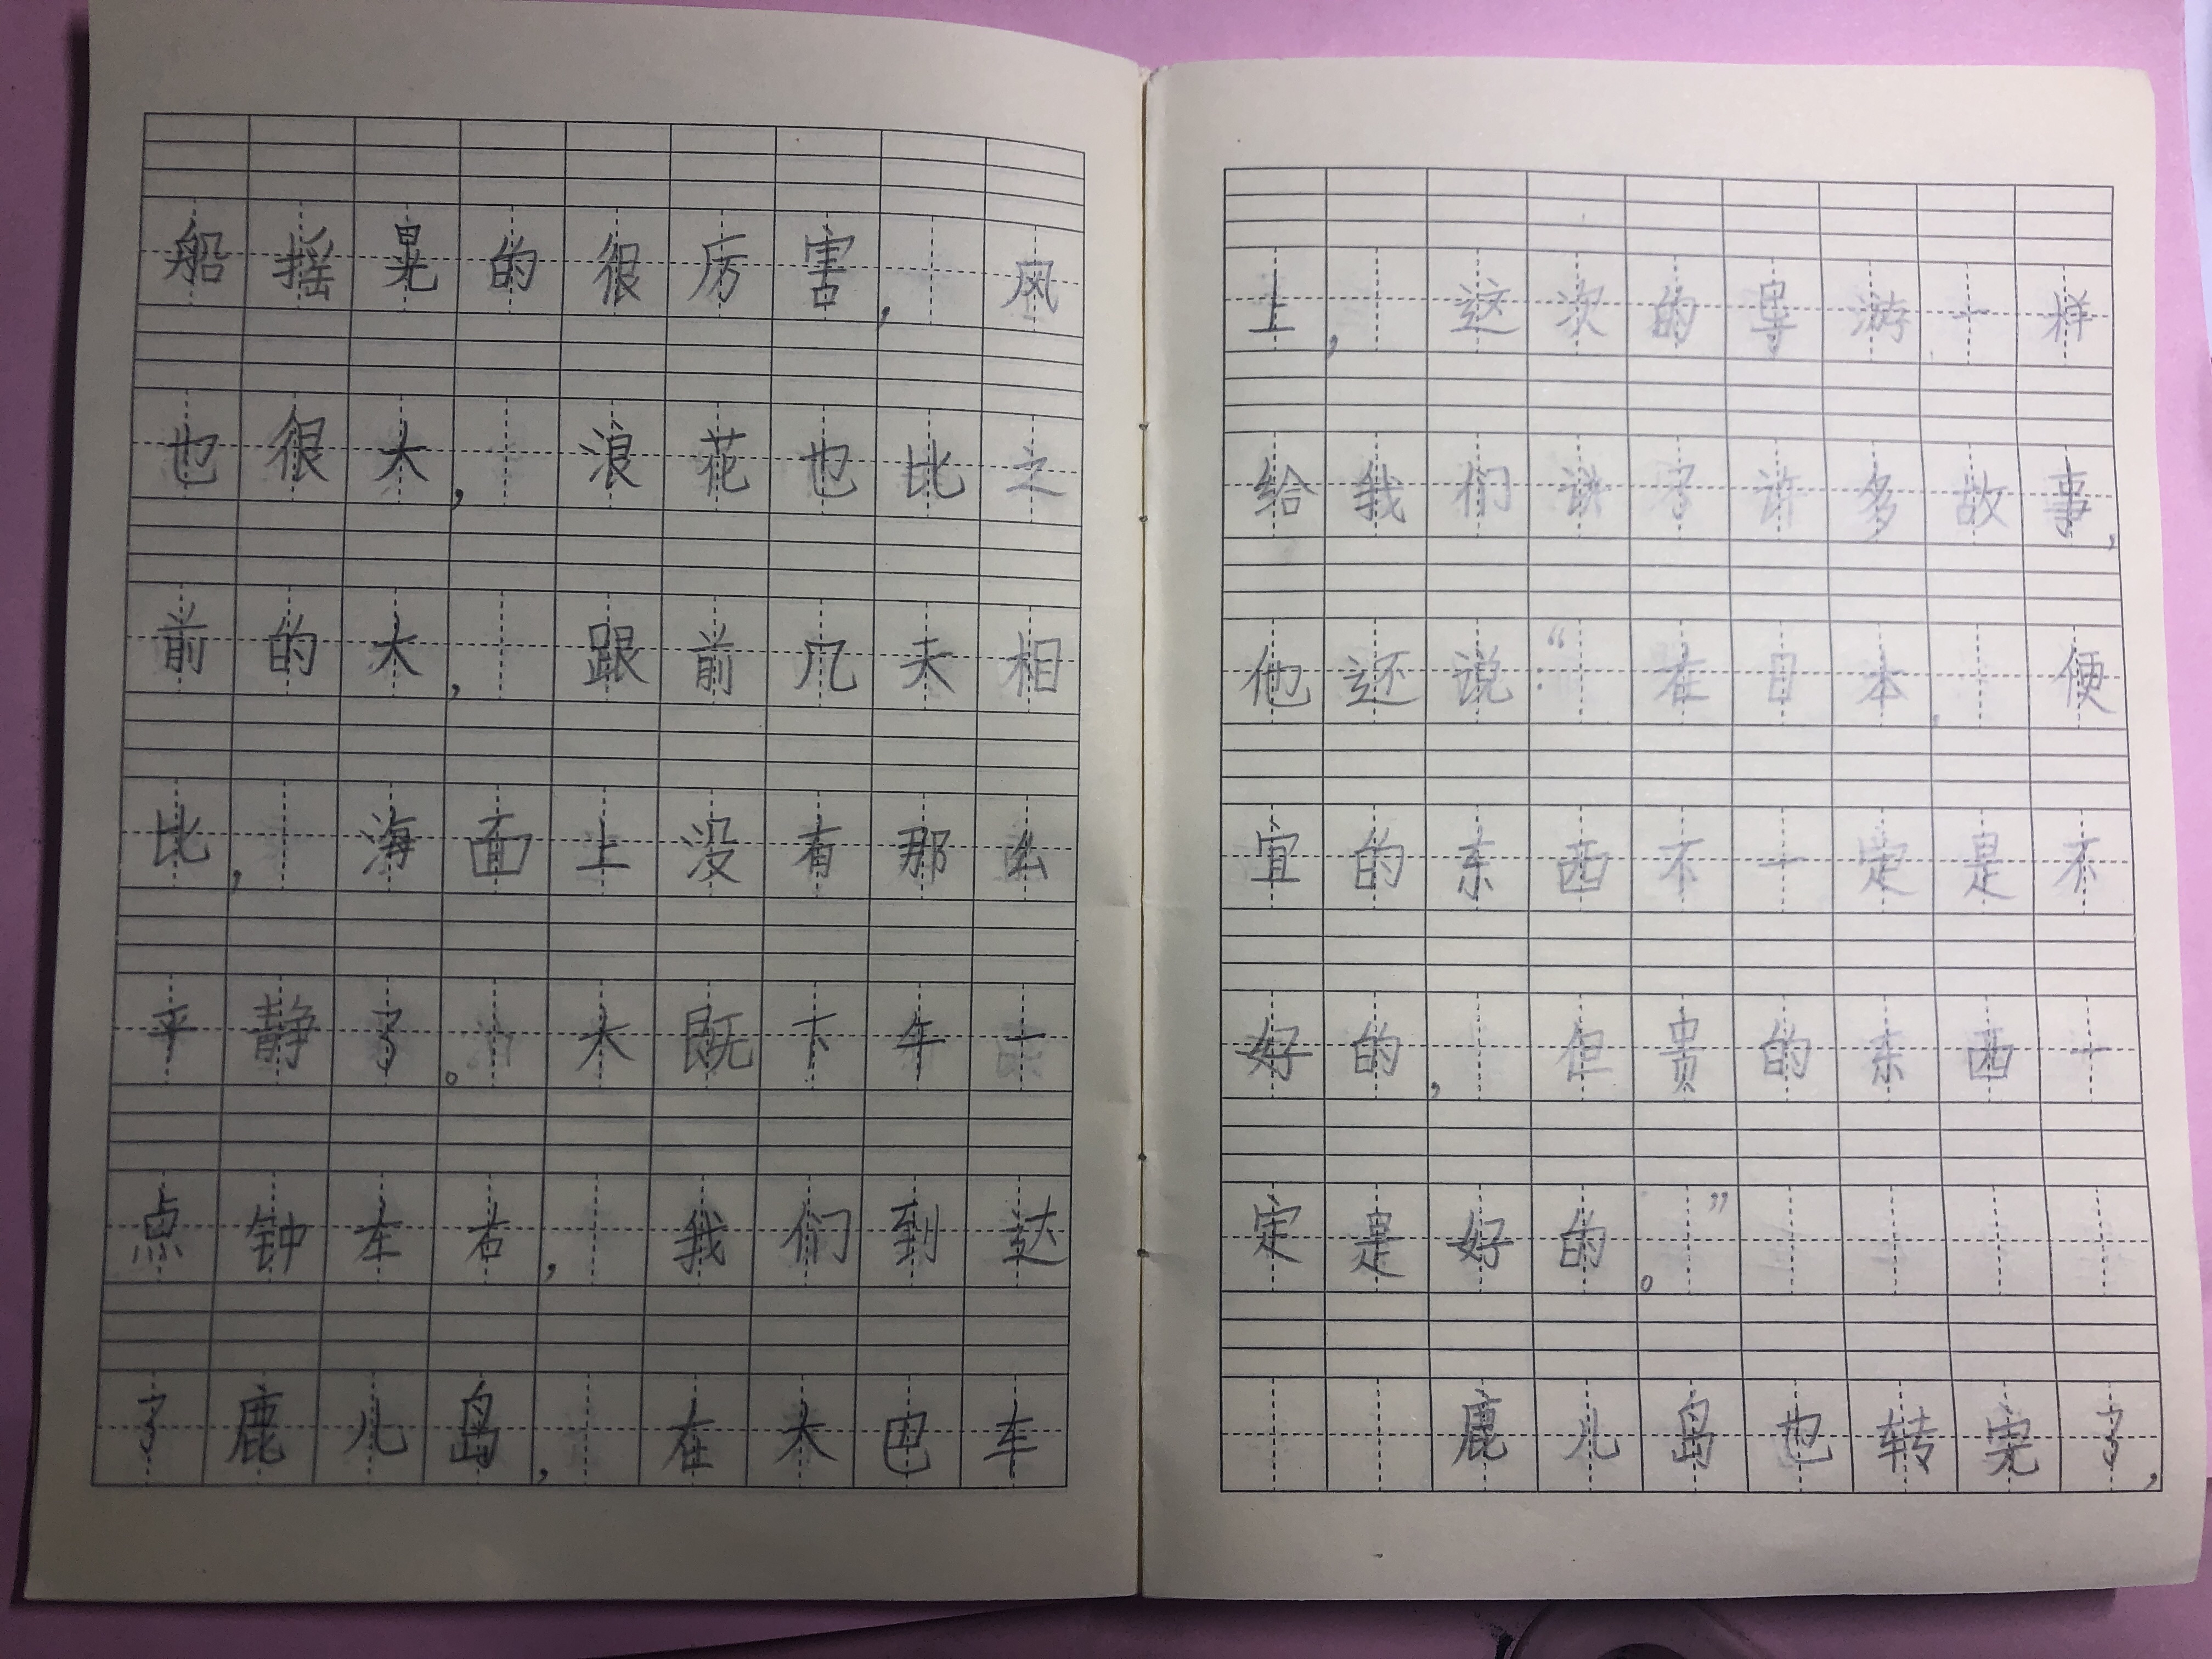 船摇晃的很厉害，风
也很大，浪花也比之
前的大，跟前几天相
比，海面上没有那么
平静了。大既下午一
点钟左右，我们到达
了鹿儿岛，在大巴车
上，这次的导游一样
给我们讲了许多故事，
他还说：“在日本，便
宜的东西不一定是不
好的，但贵的东西一
定是好的。”
鹿儿岛也转完了，